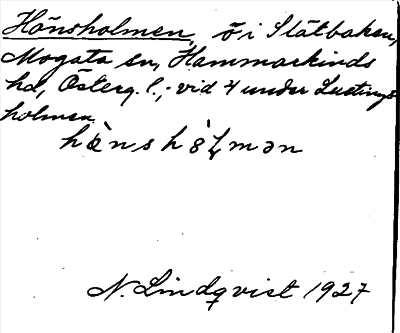 Hönsholmen, ö i Slätbaken,
Mogata sn, Hammarkinds
hd, Österg. l.; vid 4 under Lustings-
holmen.
hø̀nshʹɔɭmən
N. Lindqvist 1927